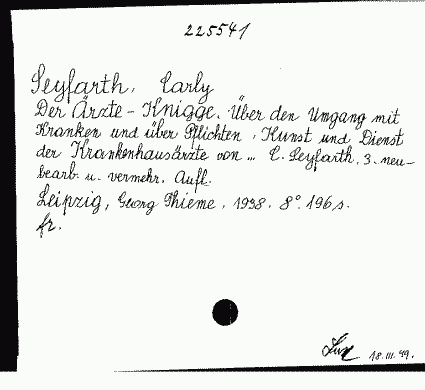 225541
Seyfarth, Carly
Der Ärzte-Knigge. Über den Umgang mit
Kranken und über Pflichten, Kunst und Dienst
der Krankenhausärzte von ... C. Seyfarth. 3. neu-
bearb. u. vermehr. Aufl.
Leipzig, Georg Thieme, 1938. 8° 196 s.
fr.
18.III.49.